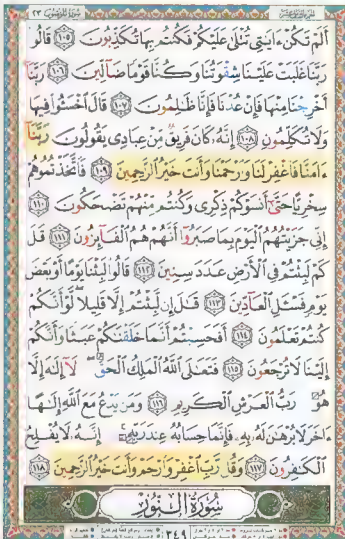 سورة المؤمنون ٢٣
أَلَمْ تَكُنْ ءَايَٰتِى تُتْلَىٰ عَلَيْكُمْ فَكُنتُم بِهَا تُكَذِّبُونَ ١٠٥ قَالُوا۟
رَبَّنَا غَلَبَتْ عَلَيْنَا شِقْوَتُنَا وَكُنَّا قَوْمًا ضَآلِّينَ ١٠٦ رَبَّنَآ
أَخْرِجْنَا مِنْهَا فَإِنْ عُدْنَا فَإِنَّا ظَٰلِمُونَ ١٠٧ قَالَ ٱخْسَـُٔوا۟ فِيهَا
وَلَا تُكَلِّمُونِ ١٠٨ إِنَّهُۥ كَانَ فَرِيقٌ مِّنْ عِبَادِى يَقُولُونَ رَبَّنَآ
ءَامَنَّا فَٱغْفِرْ لَنَا وَٱرْحَمْنَا وَأَنتَ خَيْرُ ٱلرَّٰحِمِينَ ١٠٩ فَٱتَّخَذْتُمُوهُمْ
سِخْرِيًّا حَتَّىٰٓ أَنسَوْكُمْ ذِكْرِى وَكُنتُم مِّنْهُمْ تَضْحَكُونَ ١١٠
إِنِّى جَزَيْتُهُمُ ٱلْيَوْمَ بِمَا صَبَرُوٓا۟ أَنَّهُمْ هُمُ ٱلْفَآئِزُونَ ١١١ قَٰلَ
كَمْ لَبِثْتُمْ فِى ٱلْأَرْضِ عَدَدَ سِنِينَ ١١٢ قَالُوا۟ لَبِثْنَا يَوْمًا أَوْ بَعْضَ
يَوْمٍ فَسْـَٔلِ ٱلْعَآدِّينَ ١١٣ قَٰلَ إِن لَّبِثْتُمْ إِلَّا قَلِيلًا لَّوْ أَنَّكُمْ
كُنتُمْ تَعْلَمُونَ ١١٤ أَفَحَسِبْتُمْ أَنَّمَا خَلَقْنَٰكُمْ عَبَثًا وَأَنَّكُمْ
إِلَيْنَا لَا تُرْجَعُونَ ١١٥ فَتَعَٰلَى ٱللَّهُ ٱلْمَلِكُ ٱلْحَقُّ لَآ إِلَٰهَ إِلَّا
هُوَ رَبُّ ٱلْعَرْشِ ٱلْكَرِيمِ ١١٦ وَمَن يَدْعُ مَعَ ٱللَّهِ إِلَٰهًا
ءَاخَرَ لَا بُرْهَٰنَ لَهُۥ بِهِۦ فَإِنَّمَا حِسَابُهُۥ عِندَ رَبِّهِۦٓ إِنَّهُۥ لَا يُفْلِحُ
ٱلْكَٰفِرُونَ ١١٧ وَقُل رَّبِّ ٱغْفِرْ وَٱرْحَمْ وَأَنتَ خَيْرُ ٱلرَّٰحِمِينَ ١١٨
سُورَةُ النُّورِ
٣٤٩